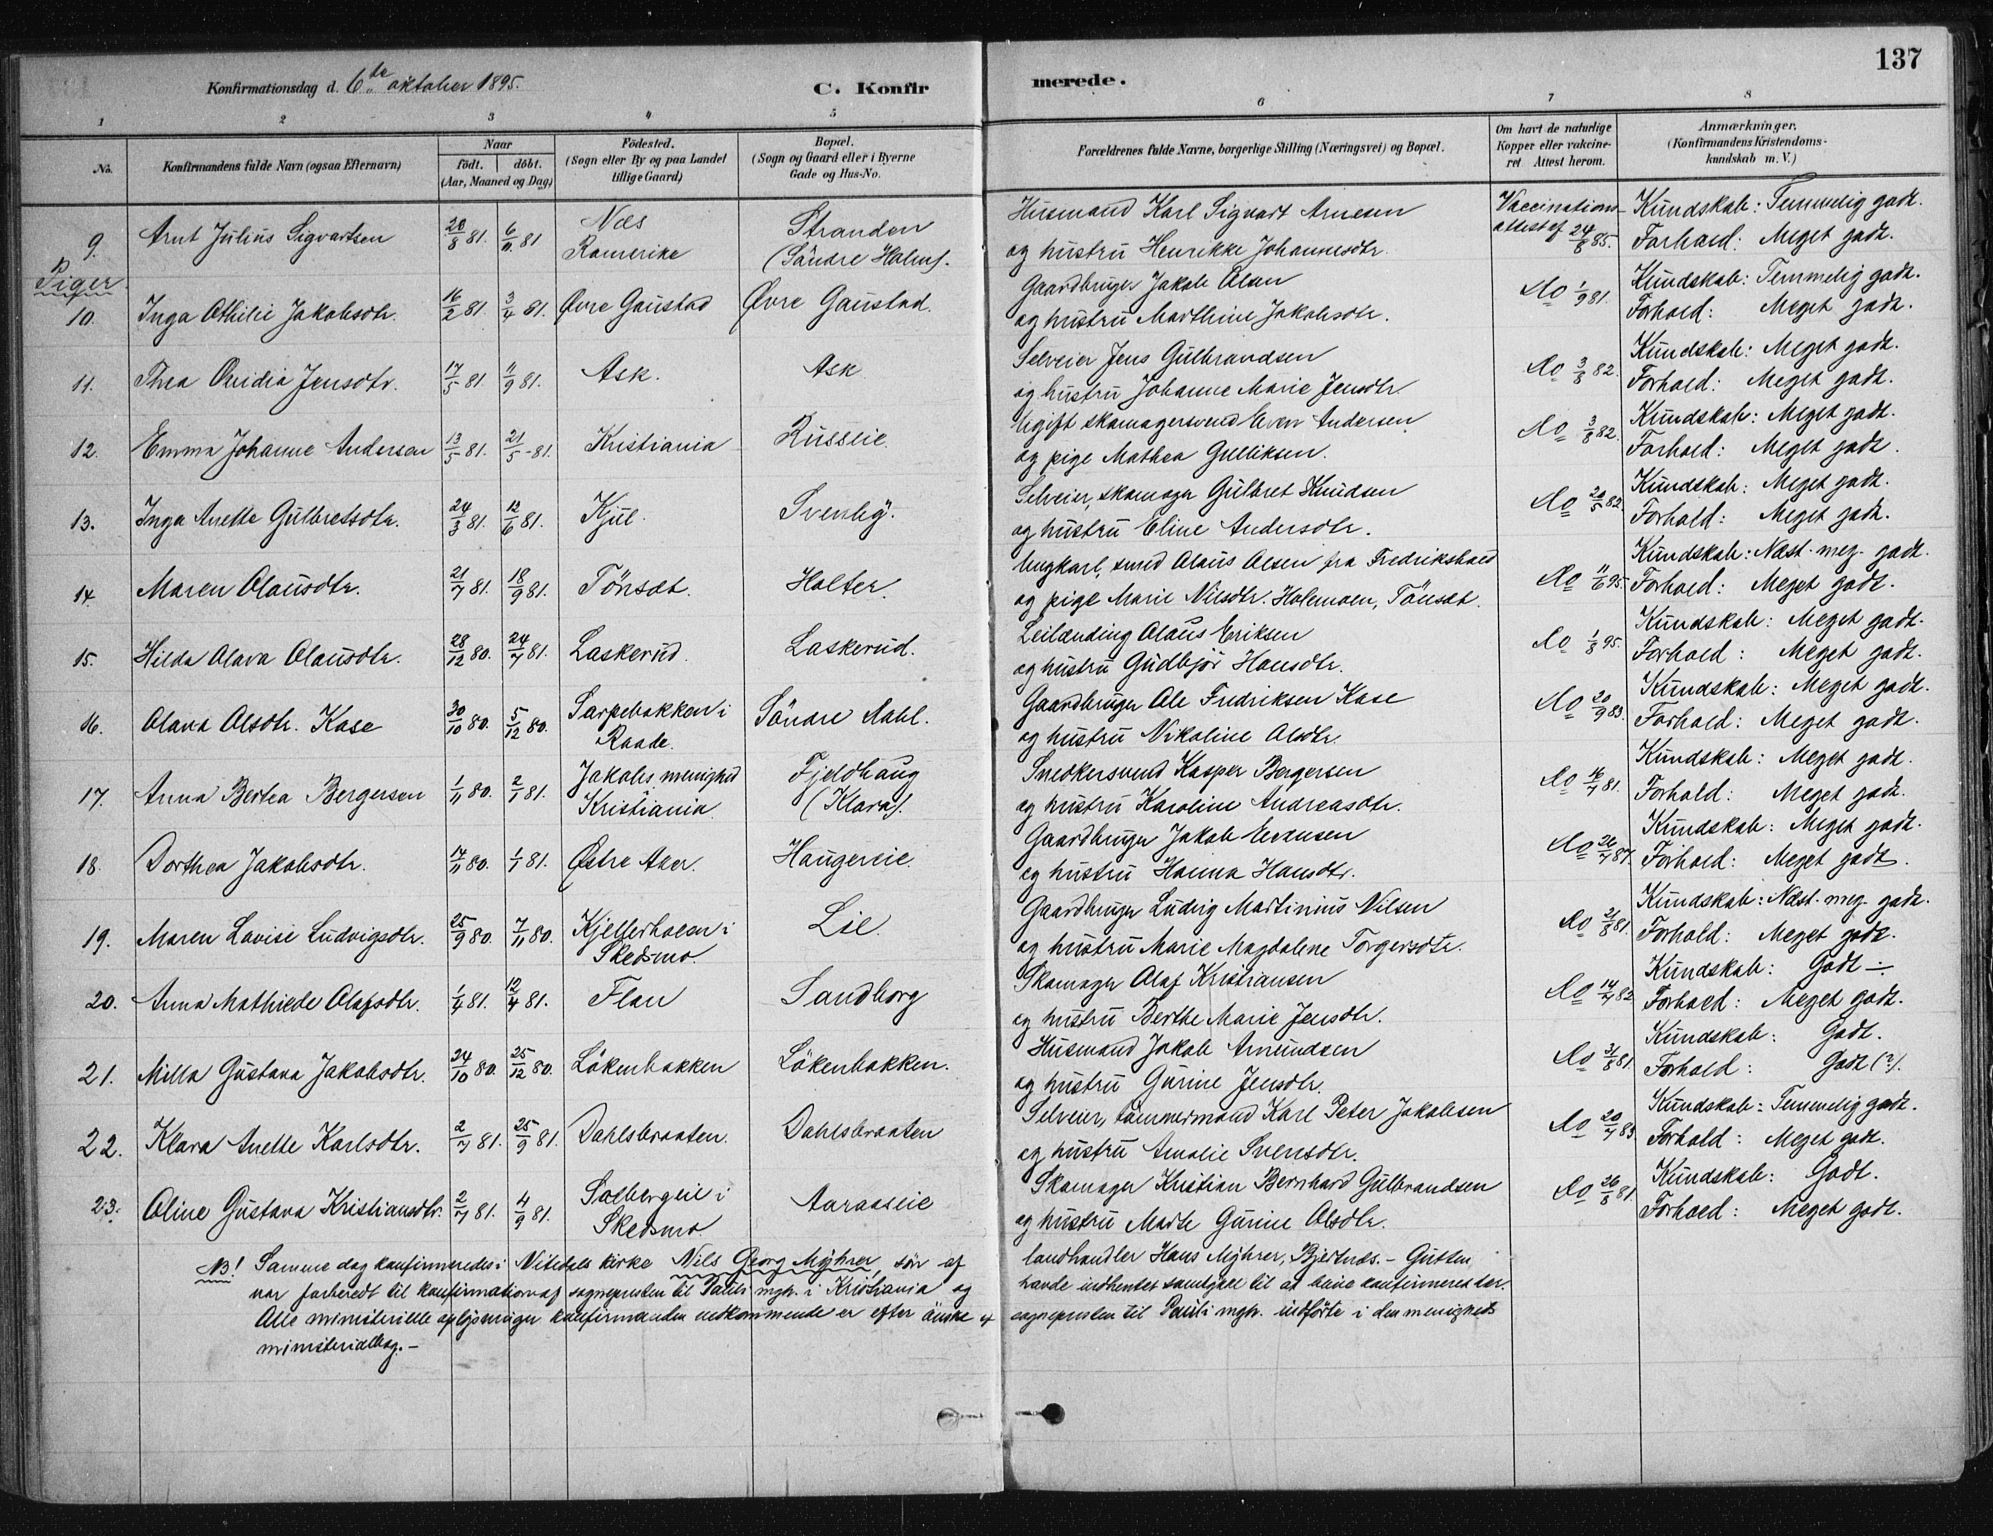 137
Konfirmationsdag d. 6de oktober 1895.
C. Konfirmerede.
1 2 3 4 5 6 7 8
No.
Konfirmandens fulde Navn (ogsaa Efternavn)
Naar
født. døbt.
(Aar, Maaned og Dag)
Fødested.
(Sogn eller By og paa Landet
tillige Gaard)
Bopæl.
(Sogn og Gaard eller i Byerne
Gade og Hus-No.
Forældrenes fulde Navne, borgerlige Stilling (Næringsvei) og Bopæl.
Om havt de naturlige
Kopper eller vakcine-
ret. Attest herom.
Anmærkninger.
(Konfirmandens Kristendoms-
kundskab m. V.)
9. Arnt Julius Sigvartsen 20/8 81. 6/11 81 Næs Romerike Stranden (Söndre Holm).
Husmand Karl Sigvart Arnesen
og hustru Henrikke Johannesdtr.
Vaccinations-
attest af 24/8 85.
Kundskab: Temmelig godt.
Forhold: Meget godt.
Piger
10. Inga Othilie Jakobsdtr. 16/2 81 3/4 81. Øvre Gaustad Øvre Gaustad.
Gaardbruger Jakob Olsen
og hustru Marthine Jakobsdtr.
do 1/9 81.
Kundskab: Temmelig godt.
Forhold: Meget godt.
11. Thea Ovidia Jensdtr. 17/5 81 11/9 81. Ask. Ask
Selveier Jens Gulbrandsen
og hustru Johanne Marie Jensdtr.
do 3/8 82.
Kundskab: Meget godt.
Forhold: Meget godt.
12. Emma Johanne Andersen 13/5 81. 21/5 -81. Kristiania Russeie
Ugift skomagersvend Even Andersen
og pige Mathea Gulliksen.
do 3/8 82.
Kundskab: Meget godt.
Forhold: Meget godt.
13. Inga Anette Gulbretsdtr. 24/3 81. 12/6 81. Kjul. Svenby.
Selveier, skomager Gulbret Knudsen
og hustru Eline Andersdtr.
do 20/5 82
Kundskab: Meget godt.
Forhold: Meget godt.
14. Maren Olausdtr. 21/7 81. 18/9 81. Tönset. Holter.
Ungkarl, smed Olaus Olsen fra Fredrikshald
og pige Marie Nilsdtr. Holemoen, Tönset.
do 11/6 95.
Kundskab: Næst. meg. godt.
Forhold: Meget godt.
15. Hilda Olava Olausdtr. 28/12 80. 24/7 81. Laskerud. Laskerud.
Leilænding Olaus Eriksen
og hustru Gudbjör Hansdtr.
do 1/8 95.
Kundskab: Meget godt.
Forhold: Meget godt.
16. Olava Olsdtr. Kase 30/10 80. 5/12 80. Sarpebakken i Raade. Söndre Aahl.
Gaardbruger Ole Fredriksen Kase
og hustru Nikoline Olsdtr.
do 20/9 83.
Kundskab: Meget godt.
Forhold: Meget godt.
17. Anna Bertea Bergersen 1/11 80. 2/1 81. Jakobs menighed Kristiania Fjeldhaug (Klara).
Snedkersvend Kasper Bergersen
og hustru Karoline Andreasdtr.
do 16/7 81.
Kundskab: Meget godt.
Forhold: Meget godt.
18. Dorthea Jakobsdtr. 14/11 80. 1/1 81. Østre Aker. Haugereie
Gaardbruger Jakob Evensen
og hustru Hanna Hansdtr.
do 26/7 87.
Kundskab: Meget godt.
Forhold: Meget godt.
19. Maren Lovise Ludvigsdtr. 25/9 80. 7/11 80. Kjellerholen i Skedsmo. Lie
Gaardbruger Ludvig Martinius Nilsen
og hustru Marie Magdalene Torgersdtr.
do 21/8 81.
Kundskab: Næst. meg. godt.
Forhold: Meget godt.
20. Anna Mathilde Olafsdtr. 1/4 81. 12/4 81. Flan Sandborg
Skomager Olaf Kristiansen
og hustru Berthe Marie Jensdtr.
do 14/7 82
Kundskab: Godt ÷.
Forhold: Meget godt.
21. Milla Gustava Jakobsdtr. 24/10 80. 25/12 80. Lökenbakken Lökenbakken.
Husmand Jakob Amundsen
og hustru Gurine Jensdtr.
do 31/8 81.
Kundskab: Godt.
Forhold: Godt (?).
22. Klara Anette Karlsdtr. 2/7 81. 25/9 81. Dahlsbraaten. Dahlsbraaten
Selveier, tömmermand Karl Peter Jakobsen
og hustru Amalie Svensdtr.
do 20/7 83.
Kundskab: Temmelig godt.
Forhold: Meget godt.
23. Oline Gustava Kristiansdtr. 2/7 81. 4/9 81. Solbergeie i Skedsmo Aaraaseie
Skomager Kristian Bernhard Gulbrandsen
og hustru Marte Gurine Olsdtr.
do 26/8 81
Kundskab: Godt.
Forhold: Meget godt.
NB! Samme dag konfirmeredes i Nitedals kirke Nils Georg Myhrer, sön af landhandler Hans Myhrer, Bjertnæs. – Gutten
var forberedt til konfirmation af sognepresten til Pauli mgh. i Kristiania og havde indhentet samtykke til at blive konfirmeret her.
Alle ministerielle oplysninger konfirmanden vedkommende er efter önske af sognepresten til Pauli mgh. indförte i den menigheds
ministerialbog. –